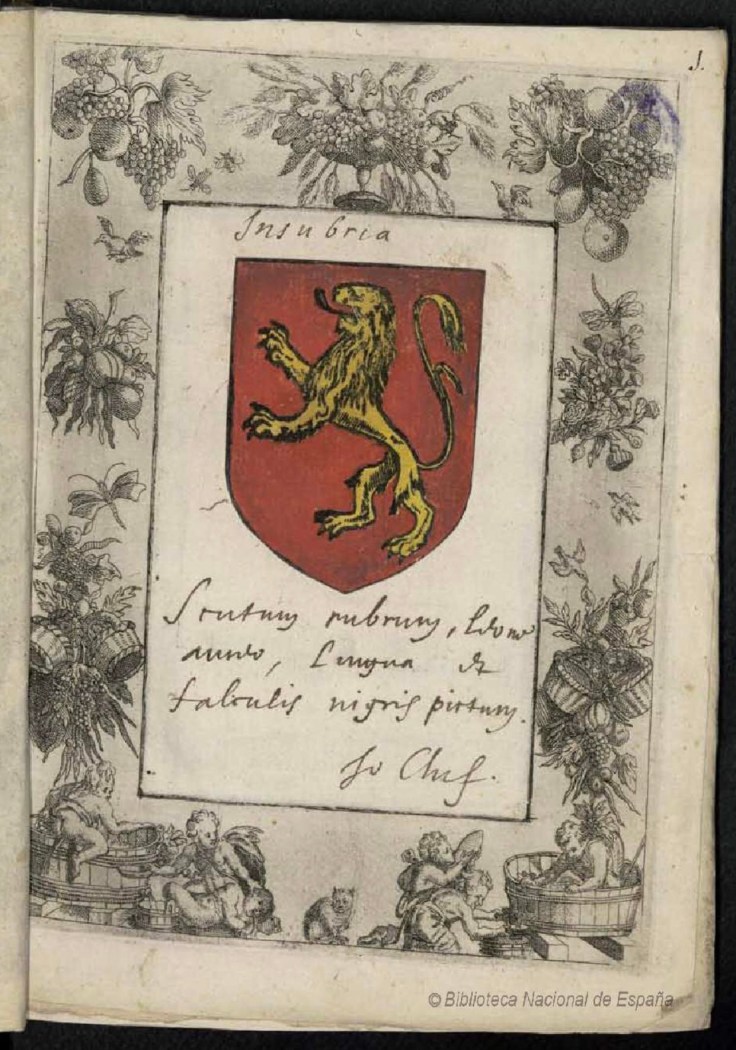 1.
Insubria
Scutum rubrum, Leone
aureo, Lingua et
falculis nigris pictum.
Jo Chif.
© Biblioteca Nacional de España